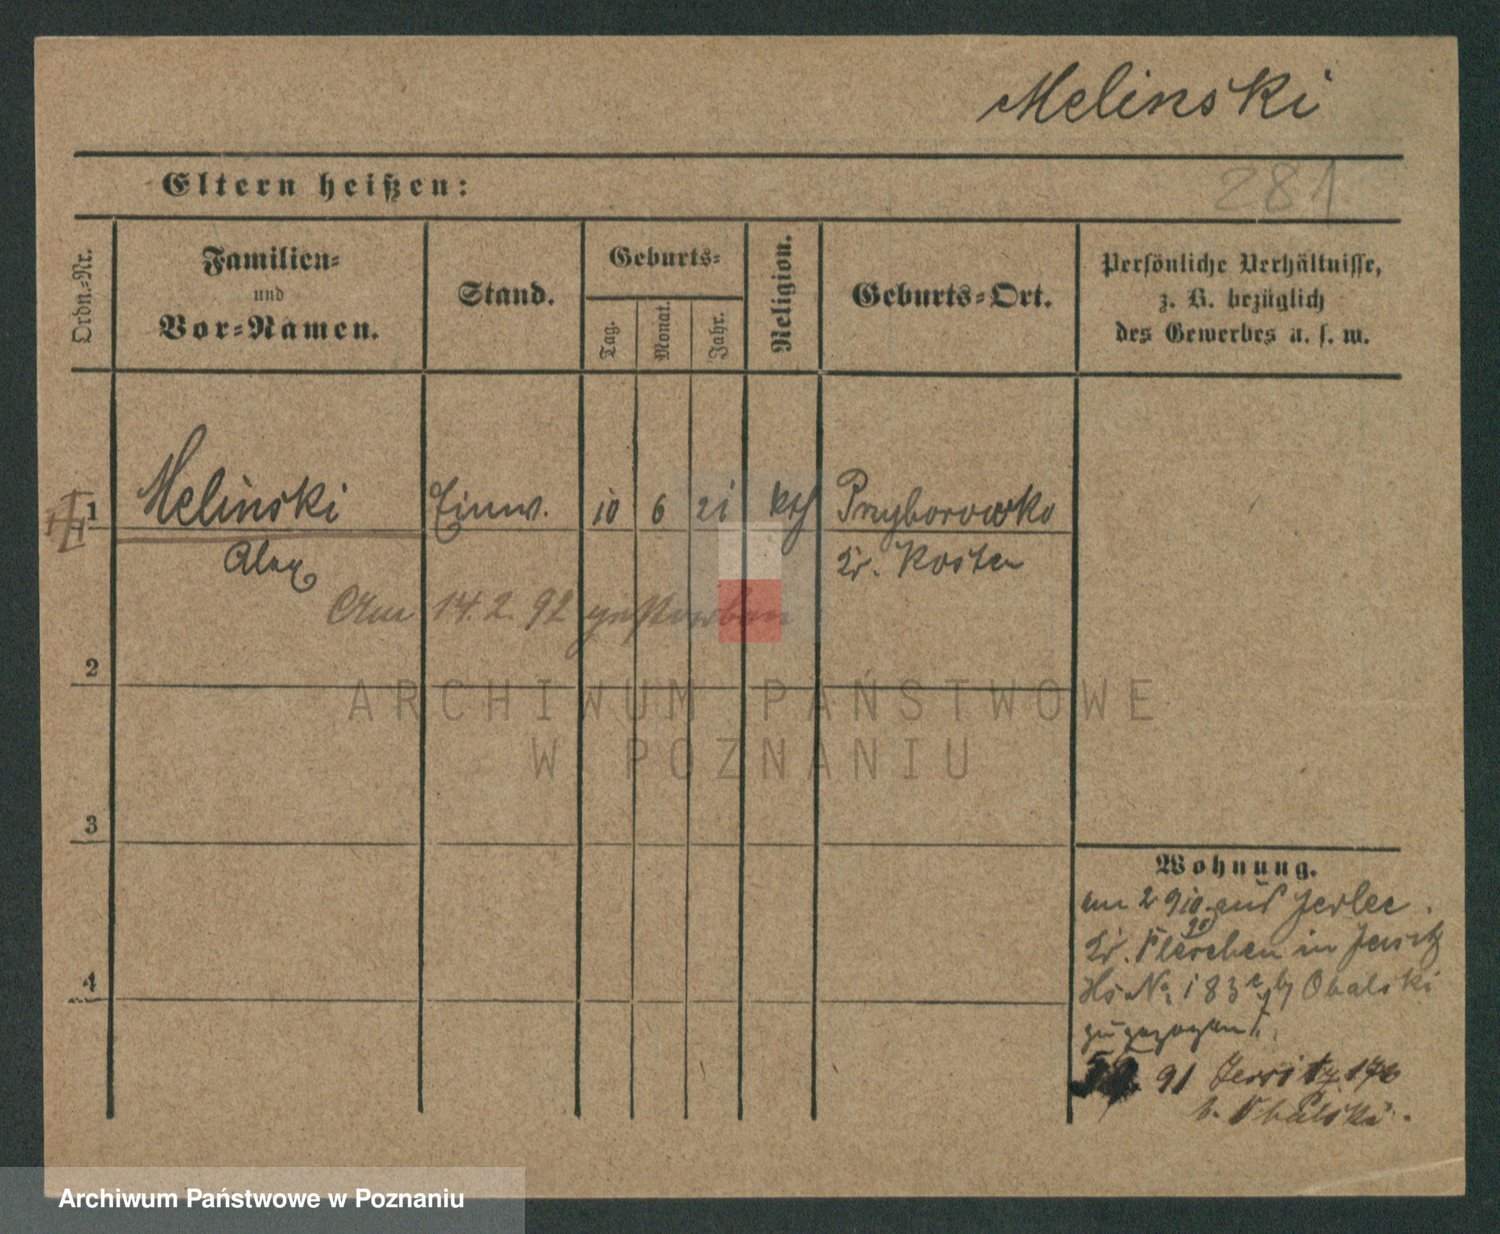 Melinski
281
Eltern heißen:
Ordn.-Nr.
Familien-
und
Vor-Namen.
Stand.
Geburts-
Tag.
Monat.
Jahr.
Religion.
Geburts-Ort.
Persönliche Verhältnisse,
z. B. bezüglich
des Gewerbes u. s. w.
1 Melinski Einw. 10 6 21 kth Przyborowko
Alex Kr. Kosten
Am 14.2.92 gestorben
2
ARCHIWUM PAŃSTWOWE
W POZNANIU
3
Wohnung.
am 2 9/10 aus
Kr. Pleschen in Jersitz
Hs No 183 by Obalski
zugezogen
4
91 Jersitz 176
b. Obalski.
Archiwum Państwowe w Poznaniu